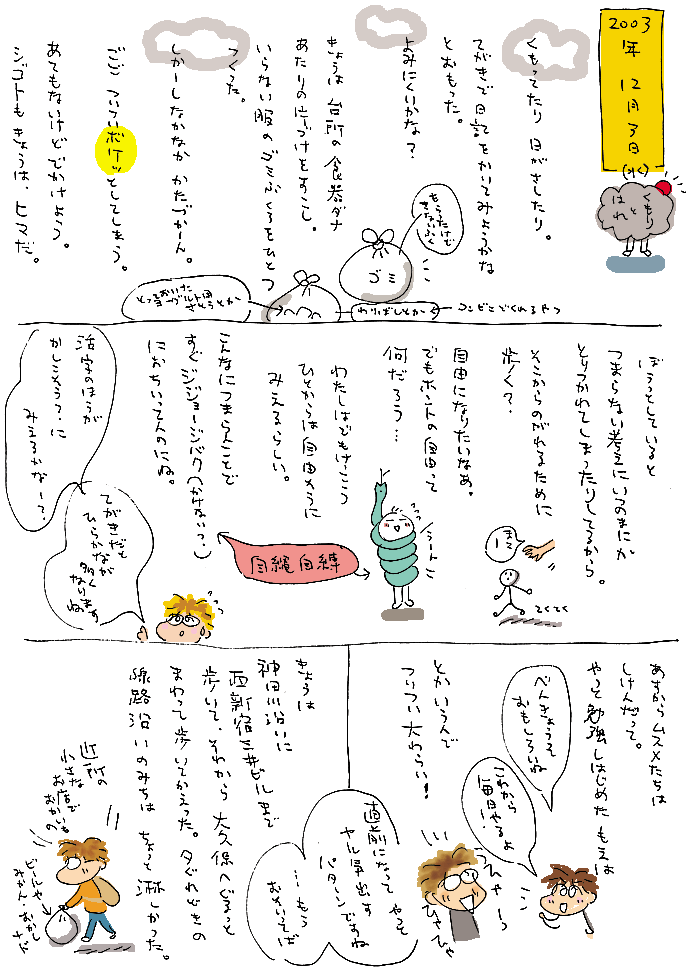 2003年 12月3日(水)
くもりとはれ
くもってたり 日がさしたり。
てがきで日記をかいてみようかな
とおもった。
よみにくいかな?
きょうは 台所の食器ダナ
あたりの片づけをすこし。
いらない服のゴミぶくろをひとつ
つくった。
しかーしなかなか かたづかーん。
ごご ついついボケッとしてしまう。
あてもないけどでかけよう。
シゴトも きょうは、ヒマだ。
もらったけど
きないふく
ゴミ
とっておいた
ヨーグルト用
さとうとか
わりばしとか
コンビニでくれるやつ
ぼうっとしていると
つまらない考えにいつのまにか
とりつかれてしまったりしてるから。
そこからのがれるために
歩く?
まて
てくてく
自由になりたいなあ。
でもホントの自由って
何だろう…
うーんご
わたしはでもけっこう
ひとからは自由そうに
みえるらしい。
こんなにつまらんことで
すぐジジョージバク(かけないっ?)
におちいってんのにね。
自縄自縛
活字のほうが
かしこそう?に
みえるかなー?
てがきだと
ひらかなが
多く
なりますね
あすからムスメたちは
しけんだって。
やっと勉強しはじめた もえは
べんきょうって
おもしろいね
これから
毎日やるよ
とかいうんで
ついつい大わらい!
うひゃーっ
ひゃひゃ
直前になって やっと
ヤル気出す
パターンですね
…もう
おそいってば
きょうは
神田川沿いに
西新宿三井ビルまで
歩いて、それから 大久保へぐるっと
まわって歩いてかえった。夕ぐれどきの
線路沿いのみちは ちょっと 淋しかった。
近所の
小さな
お店で
おかいもの
ビールや
みかん・おかし
など